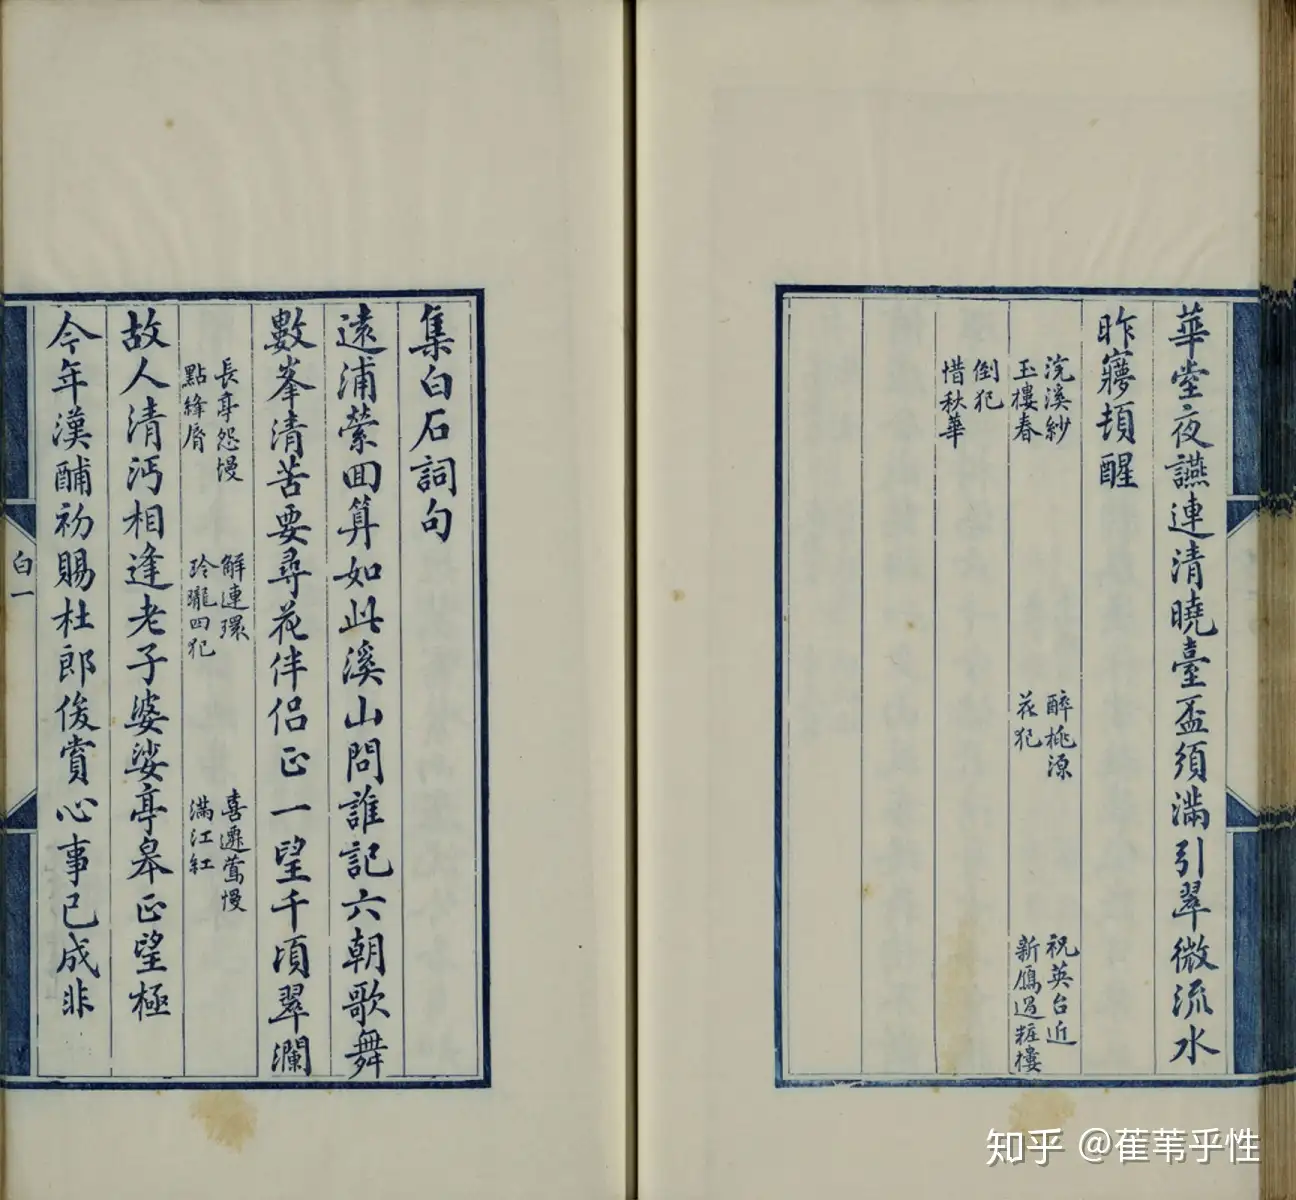 華堂夜讌連清曉臺盃須滿引翠微流水
昨寢頓醒
浣溪紗
玉樓春
醉桃源
花犯
祝英台近
新鴈過粧樓
倒犯
惜秋華
集白石詞句
遠浦縈回算如此溪山問誰記六朝歌舞
數峯清苦要尋花伴侶正一望千頃翠瀾
長亭怨慢
點絳脣
解連環
玲瓏四犯
喜遷鶯慢
滿江紅
故人清沔相逢老子婆娑亭皋正望極
今年漢酺初賜杜郎俊賞心事已成非
白一
知乎 @萑苇乎性